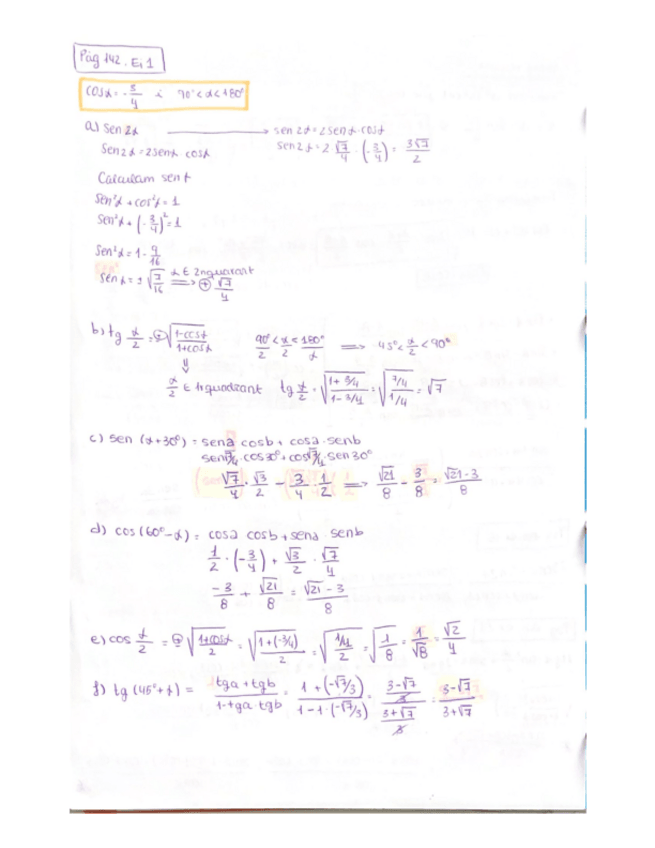 Pág 142. Ej 1
cosα = -3/4 i 90° < α < 180°
a) sen 2α → sen 2α = 2 sen α · cosα
Sen 2α = 2 senα cosα    sen 2α = 2 · √7/4 · (-3/4) = 3√7/2
Calculam sen α
Sen²α + cos²α = 1
Sen²α + (-3/4)² = 1
Sen²α = 1 - 9/16
Sen α = ± √7/16 α ∈ 2n quadrant ⟹ ⊕ √7/4
b) tg α/2 = ⊕ √(1-cosα / 1+cosα)    90°/2 < α/2 < 180°/2 ⟹ 45° < α/2 < 90°
⇓
α/2 ∈ 1r quadrant    tg α/2 = √(1+3/4 / 1-3/4) = √(7/4 / 1/4) = √7
c) sen (α+30°) = sena cosb + cosa · senb
sen √7/4 · cos 30° + cos √7/4 · sen 30°
√7/4 · √3/2 - 3/4 · 1/2 ⟹ √21/8 - 3/8 = √21-3/8
d) cos (60°-α) = cosa cosb + sena · senb
1/2 · (-3/4) + √3/2 · √7/4
-3/8 + √21/8 = √21-3/8
e) cos α/2 = ⊕ √(1+cosα / 2) = √(1+(-3/4) / 2) = √(1/4 / 2) = √(1/8) = 1/√8 = √2/4
f) tg (45°+α) = tga + tgb / 1-tga · tgb = 1 + (-√7/3) / 1-1·(-√7/3) = 3-√7/3 / 3+√7/3 = 3-√7 / 3+√7